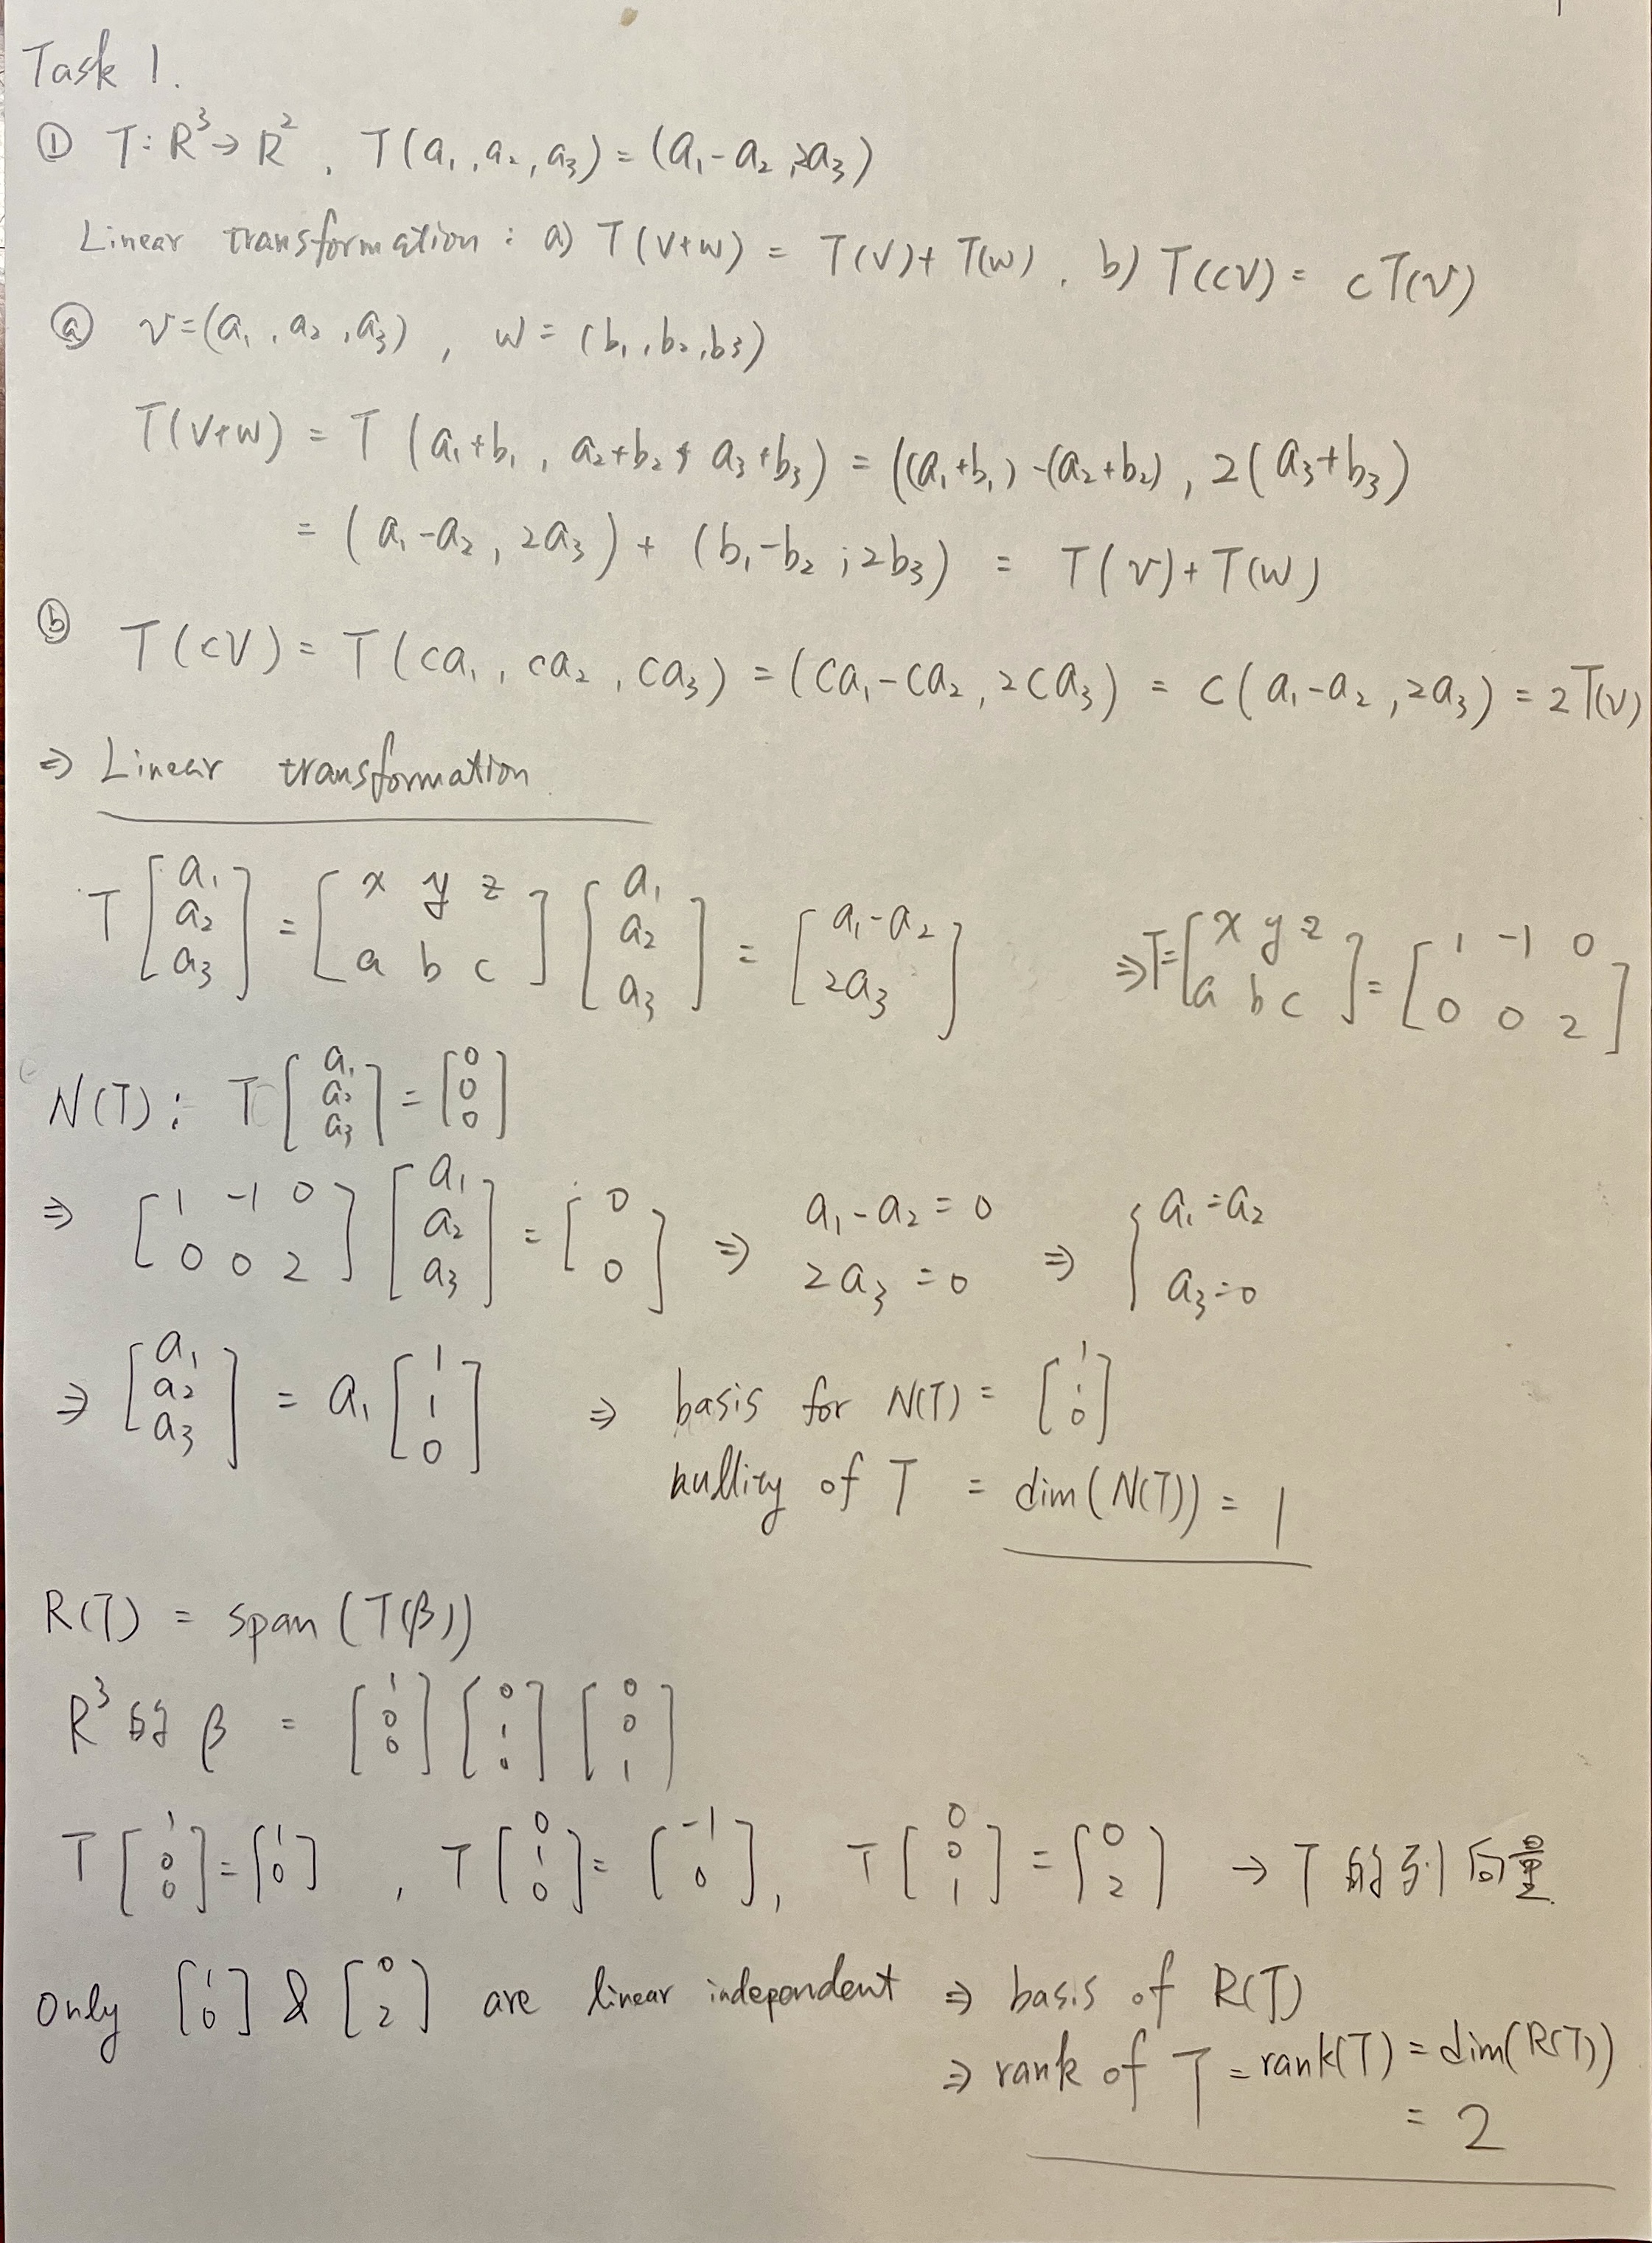 Task 1.
① T: R³→R², T(a₁, a₂, a₃) = (a₁-a₂, 2a₃)
Linear transformation: a) T(v+w) = T(v)+T(w), b) T(cv) = cT(v)
ⓐ v=(a₁, a₂, a₃), w = (b₁, b₂, b₃)
T(v+w) = T (a₁+b₁, a₂+b₂, a₃+b₃) = ((a₁+b₁)-(a₂+b₂), 2(a₃+b₃)
= (a₁-a₂, 2a₃) + (b₁-b₂, 2b₃) = T(v)+T(w)
ⓑ T(cv) = T(ca₁, ca₂, ca₃) = (ca₁-ca₂, 2ca₃) = c(a₁-a₂, 2a₃) = 2T(v)
⇒ Linear transformation
T [a₁ a₂ a₃] = [x y z; a b c] [a₁ a₂ a₃] = [a₁-a₂; 2a₃] ⇒ T= [x y z; a b c] = [1 -1 0; 0 0 2]
N(T): T [a₁ a₂ a₃] = [0 0 0]
⇒ [1 -1 0; 0 0 2] [a₁ a₂ a₃] = [0 0] ⇒ a₁-a₂=0 2a₃=0 ⇒ { a₁=a₂ a₃=0
⇒ [a₁ a₂ a₃] = a₁ [1 1 0] ⇒ basis for N(T) = [1 1 0]
nullity of T = dim(N(T)) = 1
R(T) = span(T(β))
R³的 β = [1 0 0] [0 1 0] [0 0 1]
T [1 0 0] = [1 0], T [0 1 0] = [-1 0], T [0 0 1] = [0 2] → T的列向量
only [1 0] & [0 2] are linear independent ⇒ basis of R(T)
⇒ rank of T = rank(T) = dim(R(T))
= 2